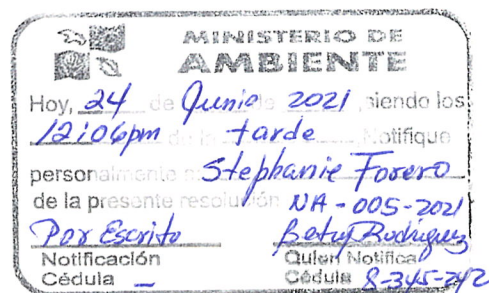 MINISTERIO DE
AMBIENTE
Hoy, 24 de Junio de 2021 siendo los
12:06pm de la tarde Notifique
personalmente a Stephanie Forero
de la presente resolución NA-005-2021
Por Escrito Betsy Rodriguez
Notificación Quien Notifica
Cédula – Cédula 8-345-242